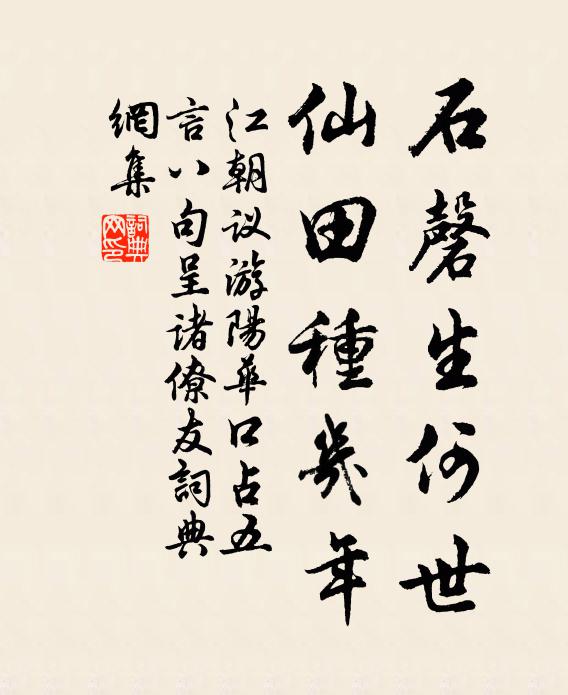 石磬生何世
仙田種幾年
江朝议游陽華口占五
言八句呈诸僚友詞典
網集
詞典
网印